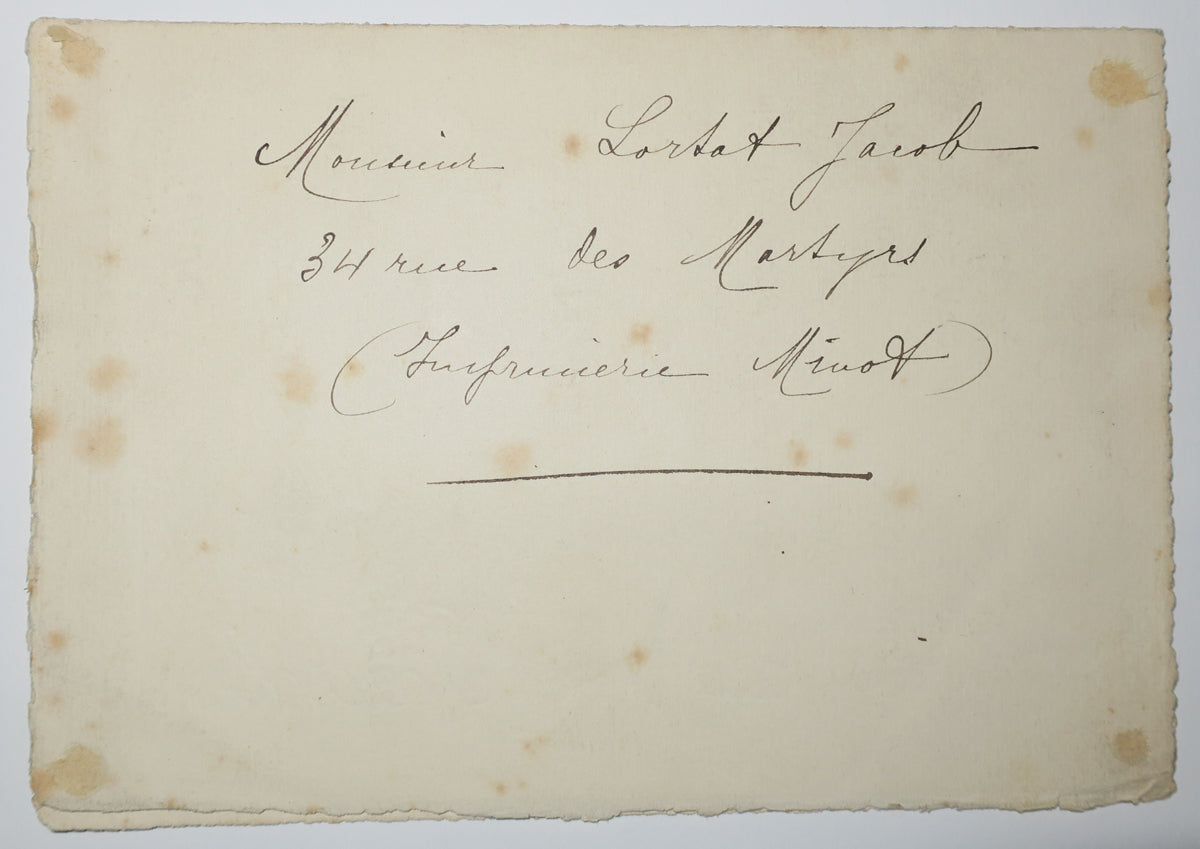 Monsieur Lortat Jacob
34 rue des Martyrs
(Imprimerie Minot)